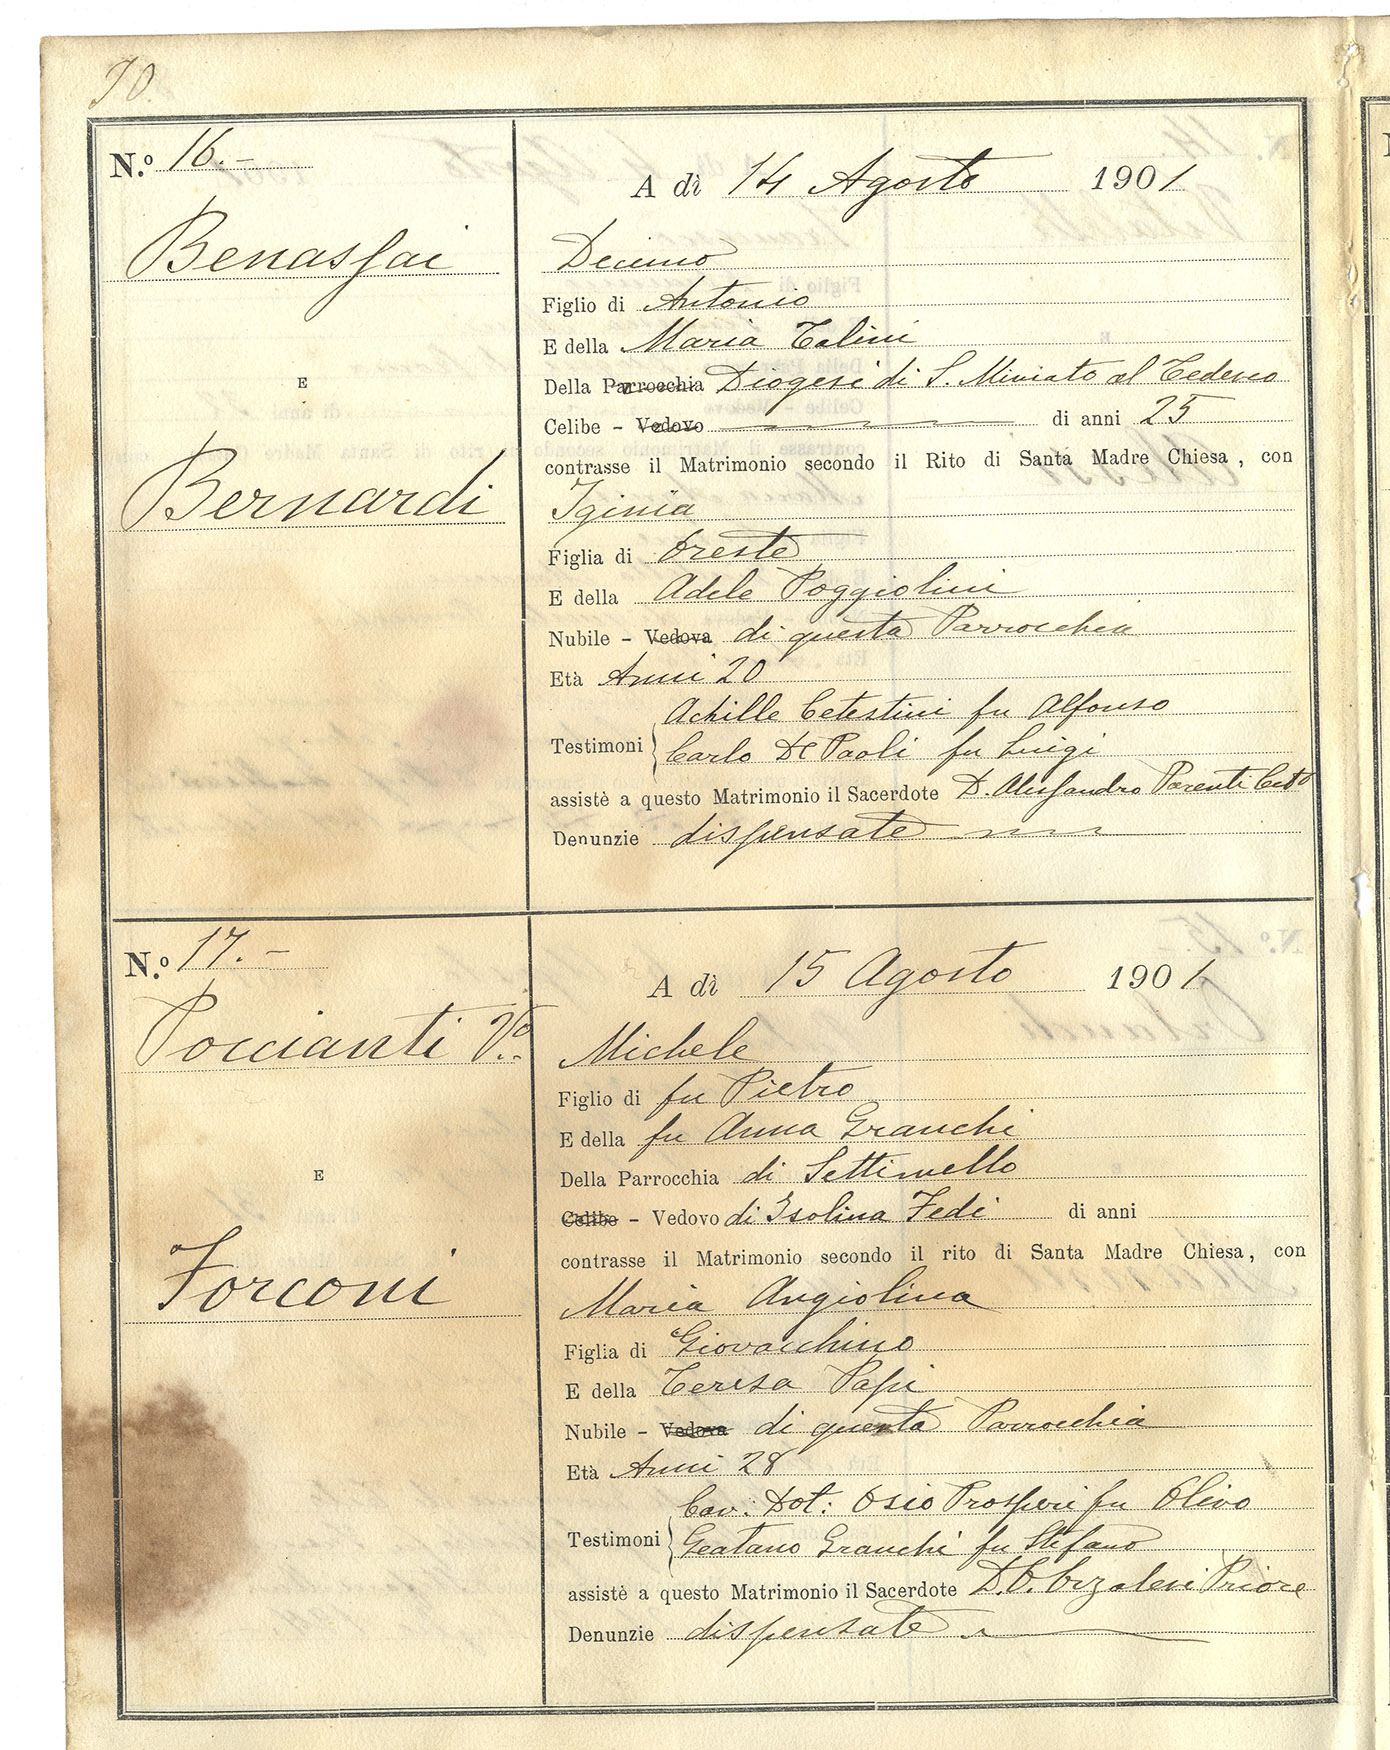 90
N.º 16.-
Benassai
E
Bernardi
A dì 14 Agosto 1901
Decimo
Figlio di Antonio
E della Maria Talini
Della Parrocchia Diogesi di S. Miniato al Tedesco
Celibe - Vedovo di anni 25
contrasse il Matrimonio secondo il Rito di Santa Madre Chiesa, con
Iginia
Figlia di Oreste
E della Adele Poggiolini
Nubile - Vedova di questa Parrocchia
Età Anni 20
Achille Cetestini fu Alfonso
Testimoni Carlo De Paoli fu Luigi
assistè a questo Matrimonio il Sacerdote D. Alessandro Parenti
Denunzie dispensate
N.º 17.-
Poccianti Vº.
E
Forconi
A dì 15 Agosto 1901
Michele
Figlio di fu Pietro
E della fu Anna Granchi
Della Parrocchia di Settimello
Celibe - Vedovo di Isolina Fedi di anni
contrasse il Matrimonio secondo il rito di Santa Madre Chiesa, con
Maria Angiolina
Figlia di Giovacchino
E della Teresa Papi
Nubile - Vedova di questa Parrocchia
Età Anni 28
Cav: Dot: Osio Prosperi fu Olivo
Testimoni Geatano Granchi fu Stefano
assistè a questo Matrimonio il Sacerdote Priore
Denunzie dispensate